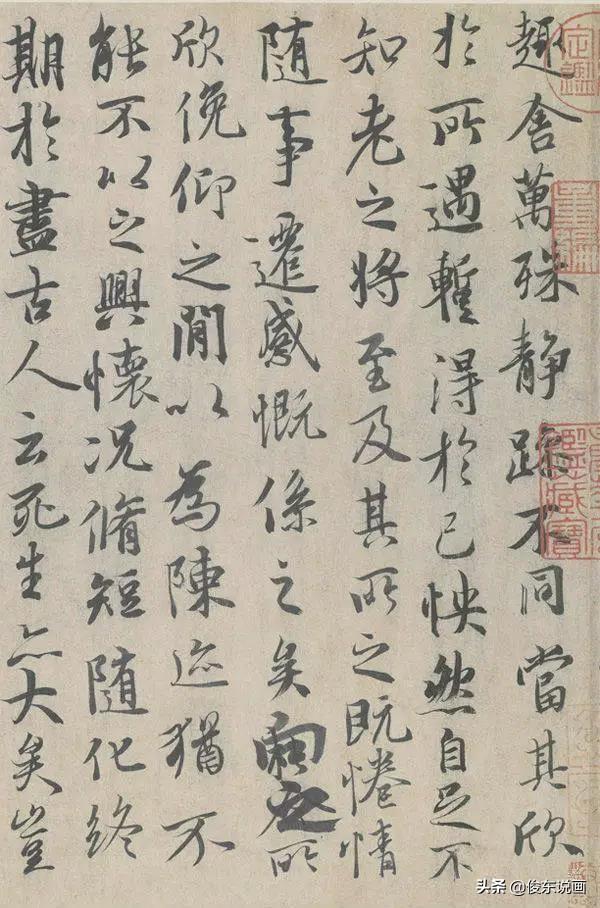 趣舍萬殊静躁不同當其欣
於所遇暫得於己怏然自足不
知老之將至及其所之既惓情
随事遷感慨係之矣向之所
欣俛仰之閒以為陳迹猶不
能不以之興懷況脩短随化終
期於盡古人云死生亦大矣豈
头条 @俊东说画